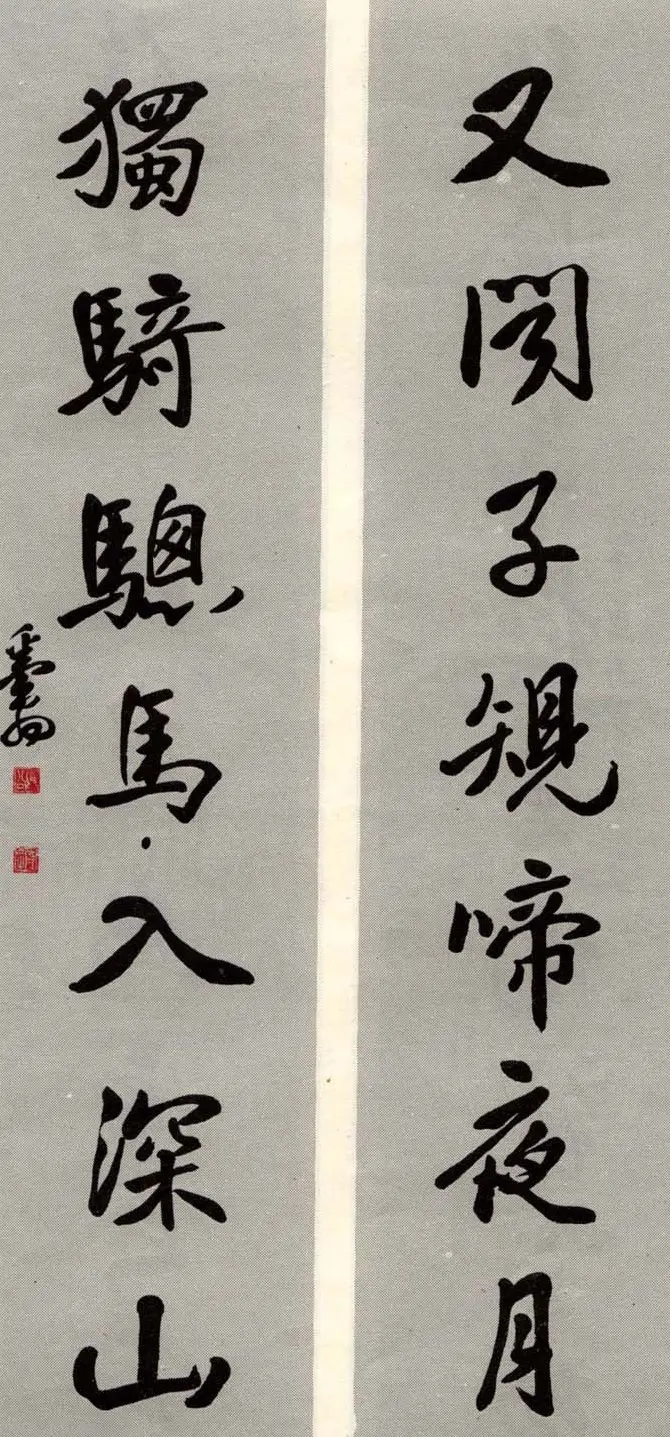 又聞子規啼夜月
獨騎驄馬入深山